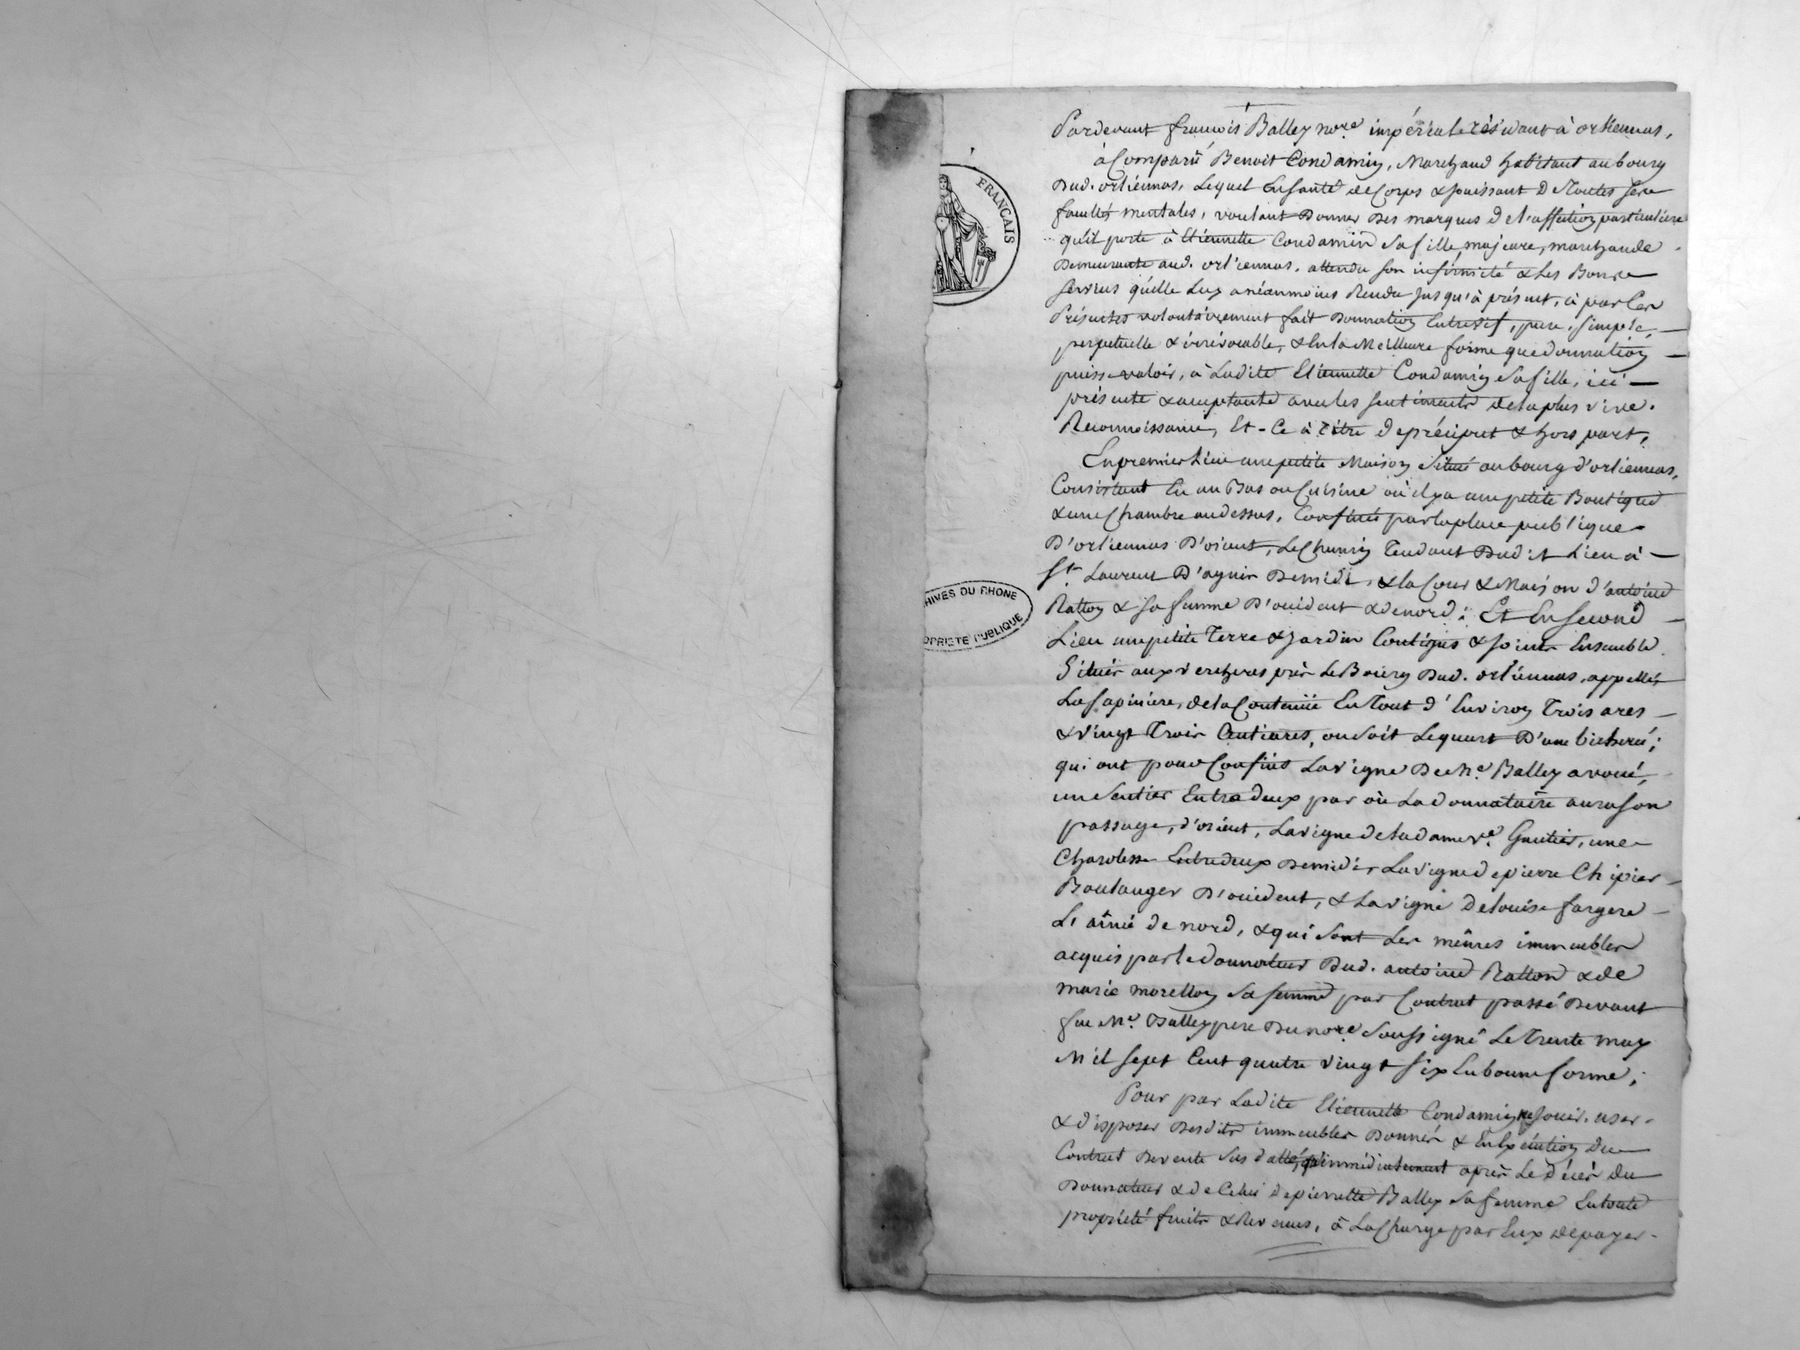 Pardevant françois Balley nore. impérial résidant à orliennas,
à Comparû Benoit Condamin, Marchand habitant au bourg
Dud. orliennas, Lequel En santé de Corps & jouissant De Toutes Ses
facultés mentales, voulant Donner Des marques De l'affection particuliere
qu'il porte à Etiennette Condamin Sa fille majeure, marchande
Demeurante aud. orliennas, attendu son infirmité & Les Bons
services quélle Luy a néanmoins Rendu jusqu'à présent, à par Ces
Présentes volontairement fait Donnation Entrevif, pure, simple,
perpetuelle & irrévocable, & En la Meilleure forme que donnation
puisse valoir, à Ladite Etiennette Condamin Sa fille, ici
présente & acceptante avec les sentiments de la plus vive
Reconnoissance, Et Ce à titre de préciput & hors part,
En premier Lieu une petite Maison Situé au bourg d'orliennas,
Consistant En un Bas ou Cuisine où il y a une petite Boutique
& une Chambre au dessus, Confinés par la place publique
D'orliennas D'oriant, Le Chemin Tendant Dudit Lieu à
St. Laurent D'agnin De midi, & la Cour & Maison d'antoine
Ratton & Sa femme D'occident & de nord; Et En Second
Lieu une petite Terre & jardin Contigus & joints Ensemble
Situés aux vercheres près Le Bourg Dud. orliennas, appellés
La Sapiniere, de la Contenüe En Tout d'Environ Trois ares
& vingt Trois Centiares, ou Soit Le quart D'une bicherée;
qui ont pour Confins La vigne De Balley avoué,
un Sentier Entre deux par où La donnataire aura son
passage, d'orient, La vigne de la dame ve. Gautier, une
Charolesse Entre deux De midi, La vigne de pierre Chipier
Boulanger D'occident, & La vigne De louise fargere
L'aîné de nord, & qui Sont Les mêmes immeubles
acquis par le donnateur Dud. antoine Ratton & de
marie morellon Sa femme par Contrat passé Devant
feu Me. Balley pere Du nore. Soussigné Le Trente may
Mil Sept Cent quatre vingt Six En bonne forme;
Pour par Ladite Etiennette Condamin jouir, user
& disposer Desdits immeubles Donnés & En Exécution Du
Contrat De vente Sus datté, immédiatement après Le décès Du
Donnateur & de Celui de pierrette Balley Sa femme En toute
propriété fruits & Revenus, à La Charge par Eux de payer
FRANÇAIS
HIVES DU RHONE
OPRIETE PUBLIQUE